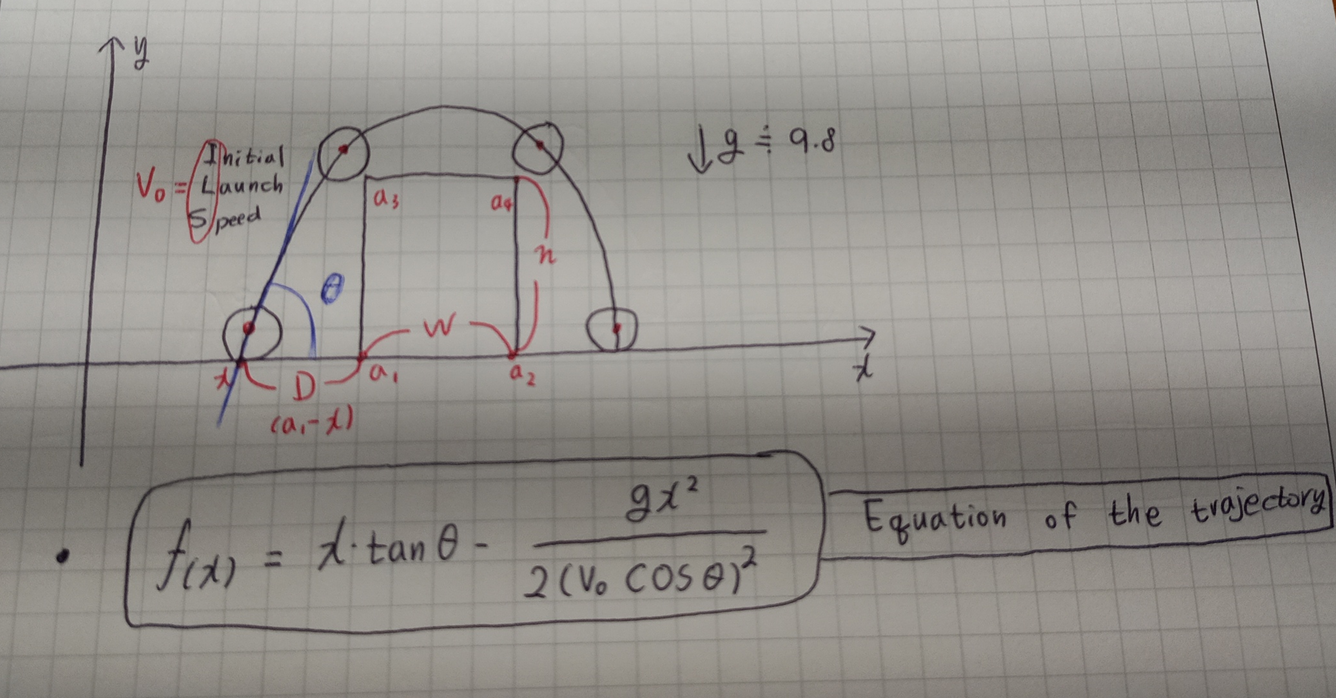 y
Initial
V₀ = Launch
Speed
↓g ≒ 9.8
a₃
a₄
h
θ
W
x
D
a₁
a₂
x
(a₁-x)
• f(x) = x·tanθ - gx² / 2(V₀ cosθ)²
Equation of the trajectory